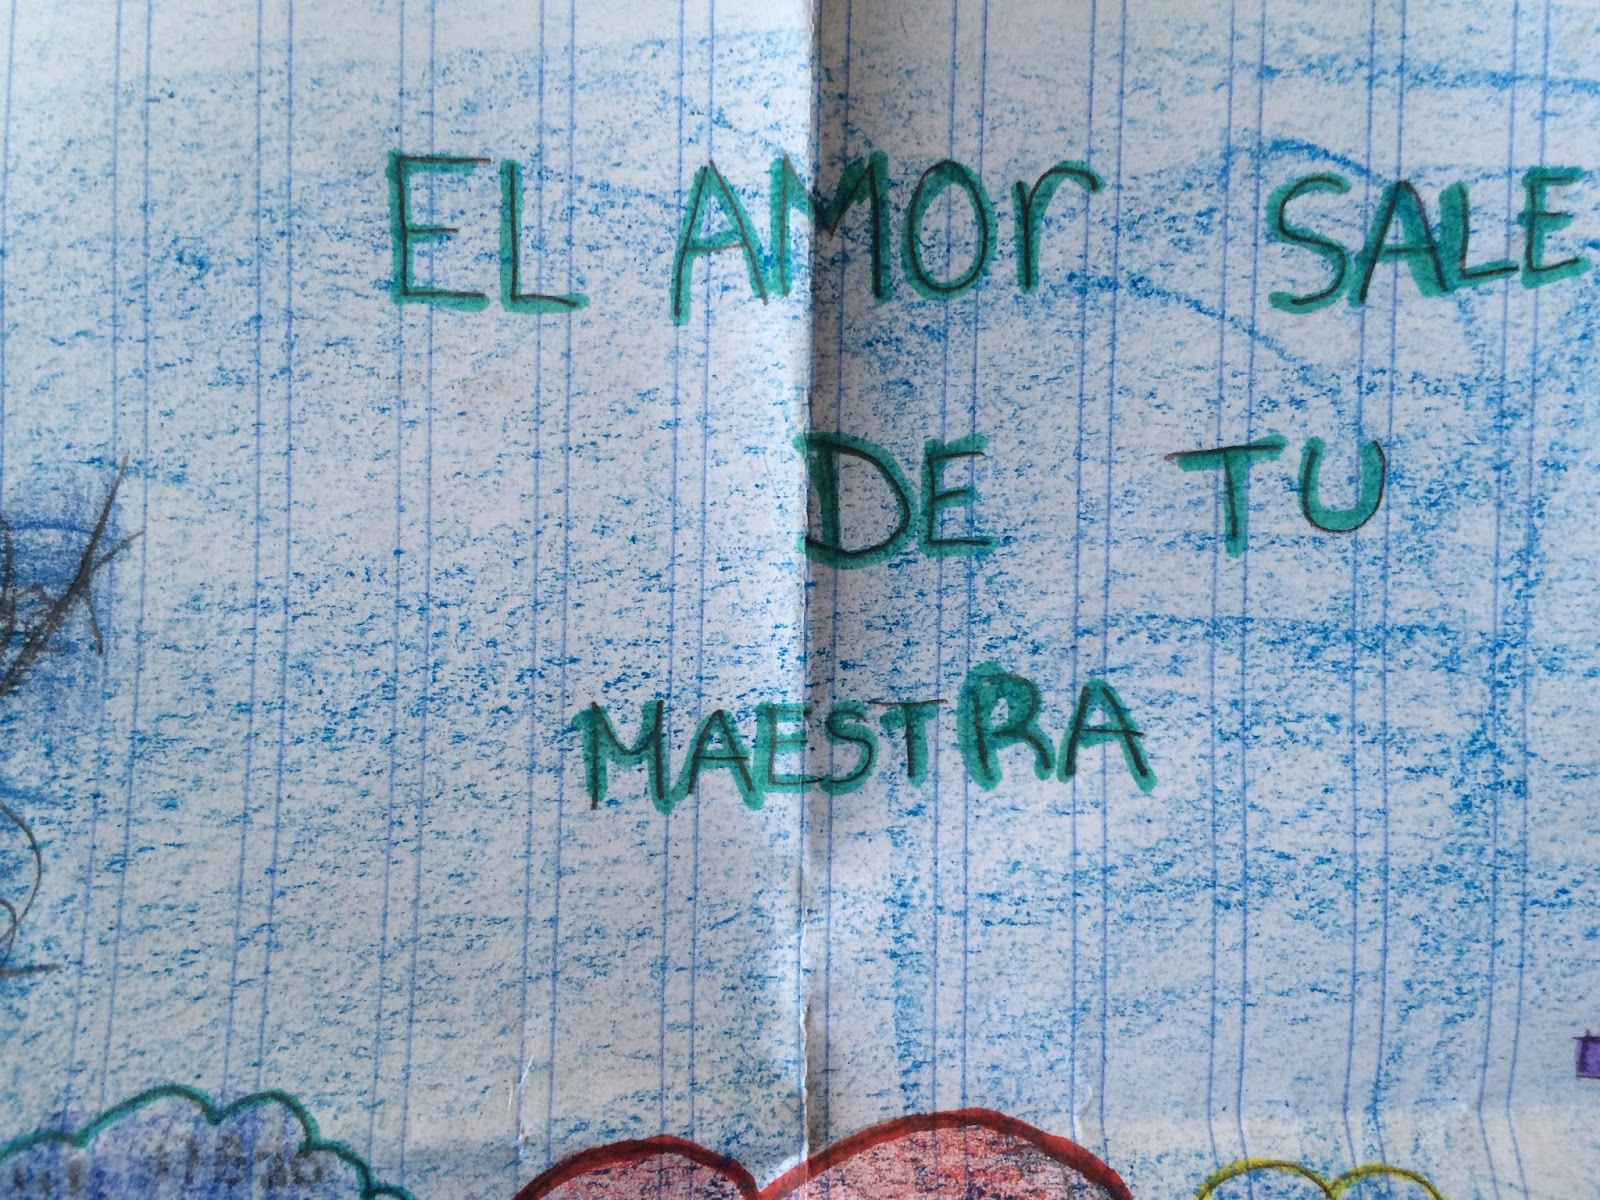 EL AMOr SALE
DE TU
MAESTRA